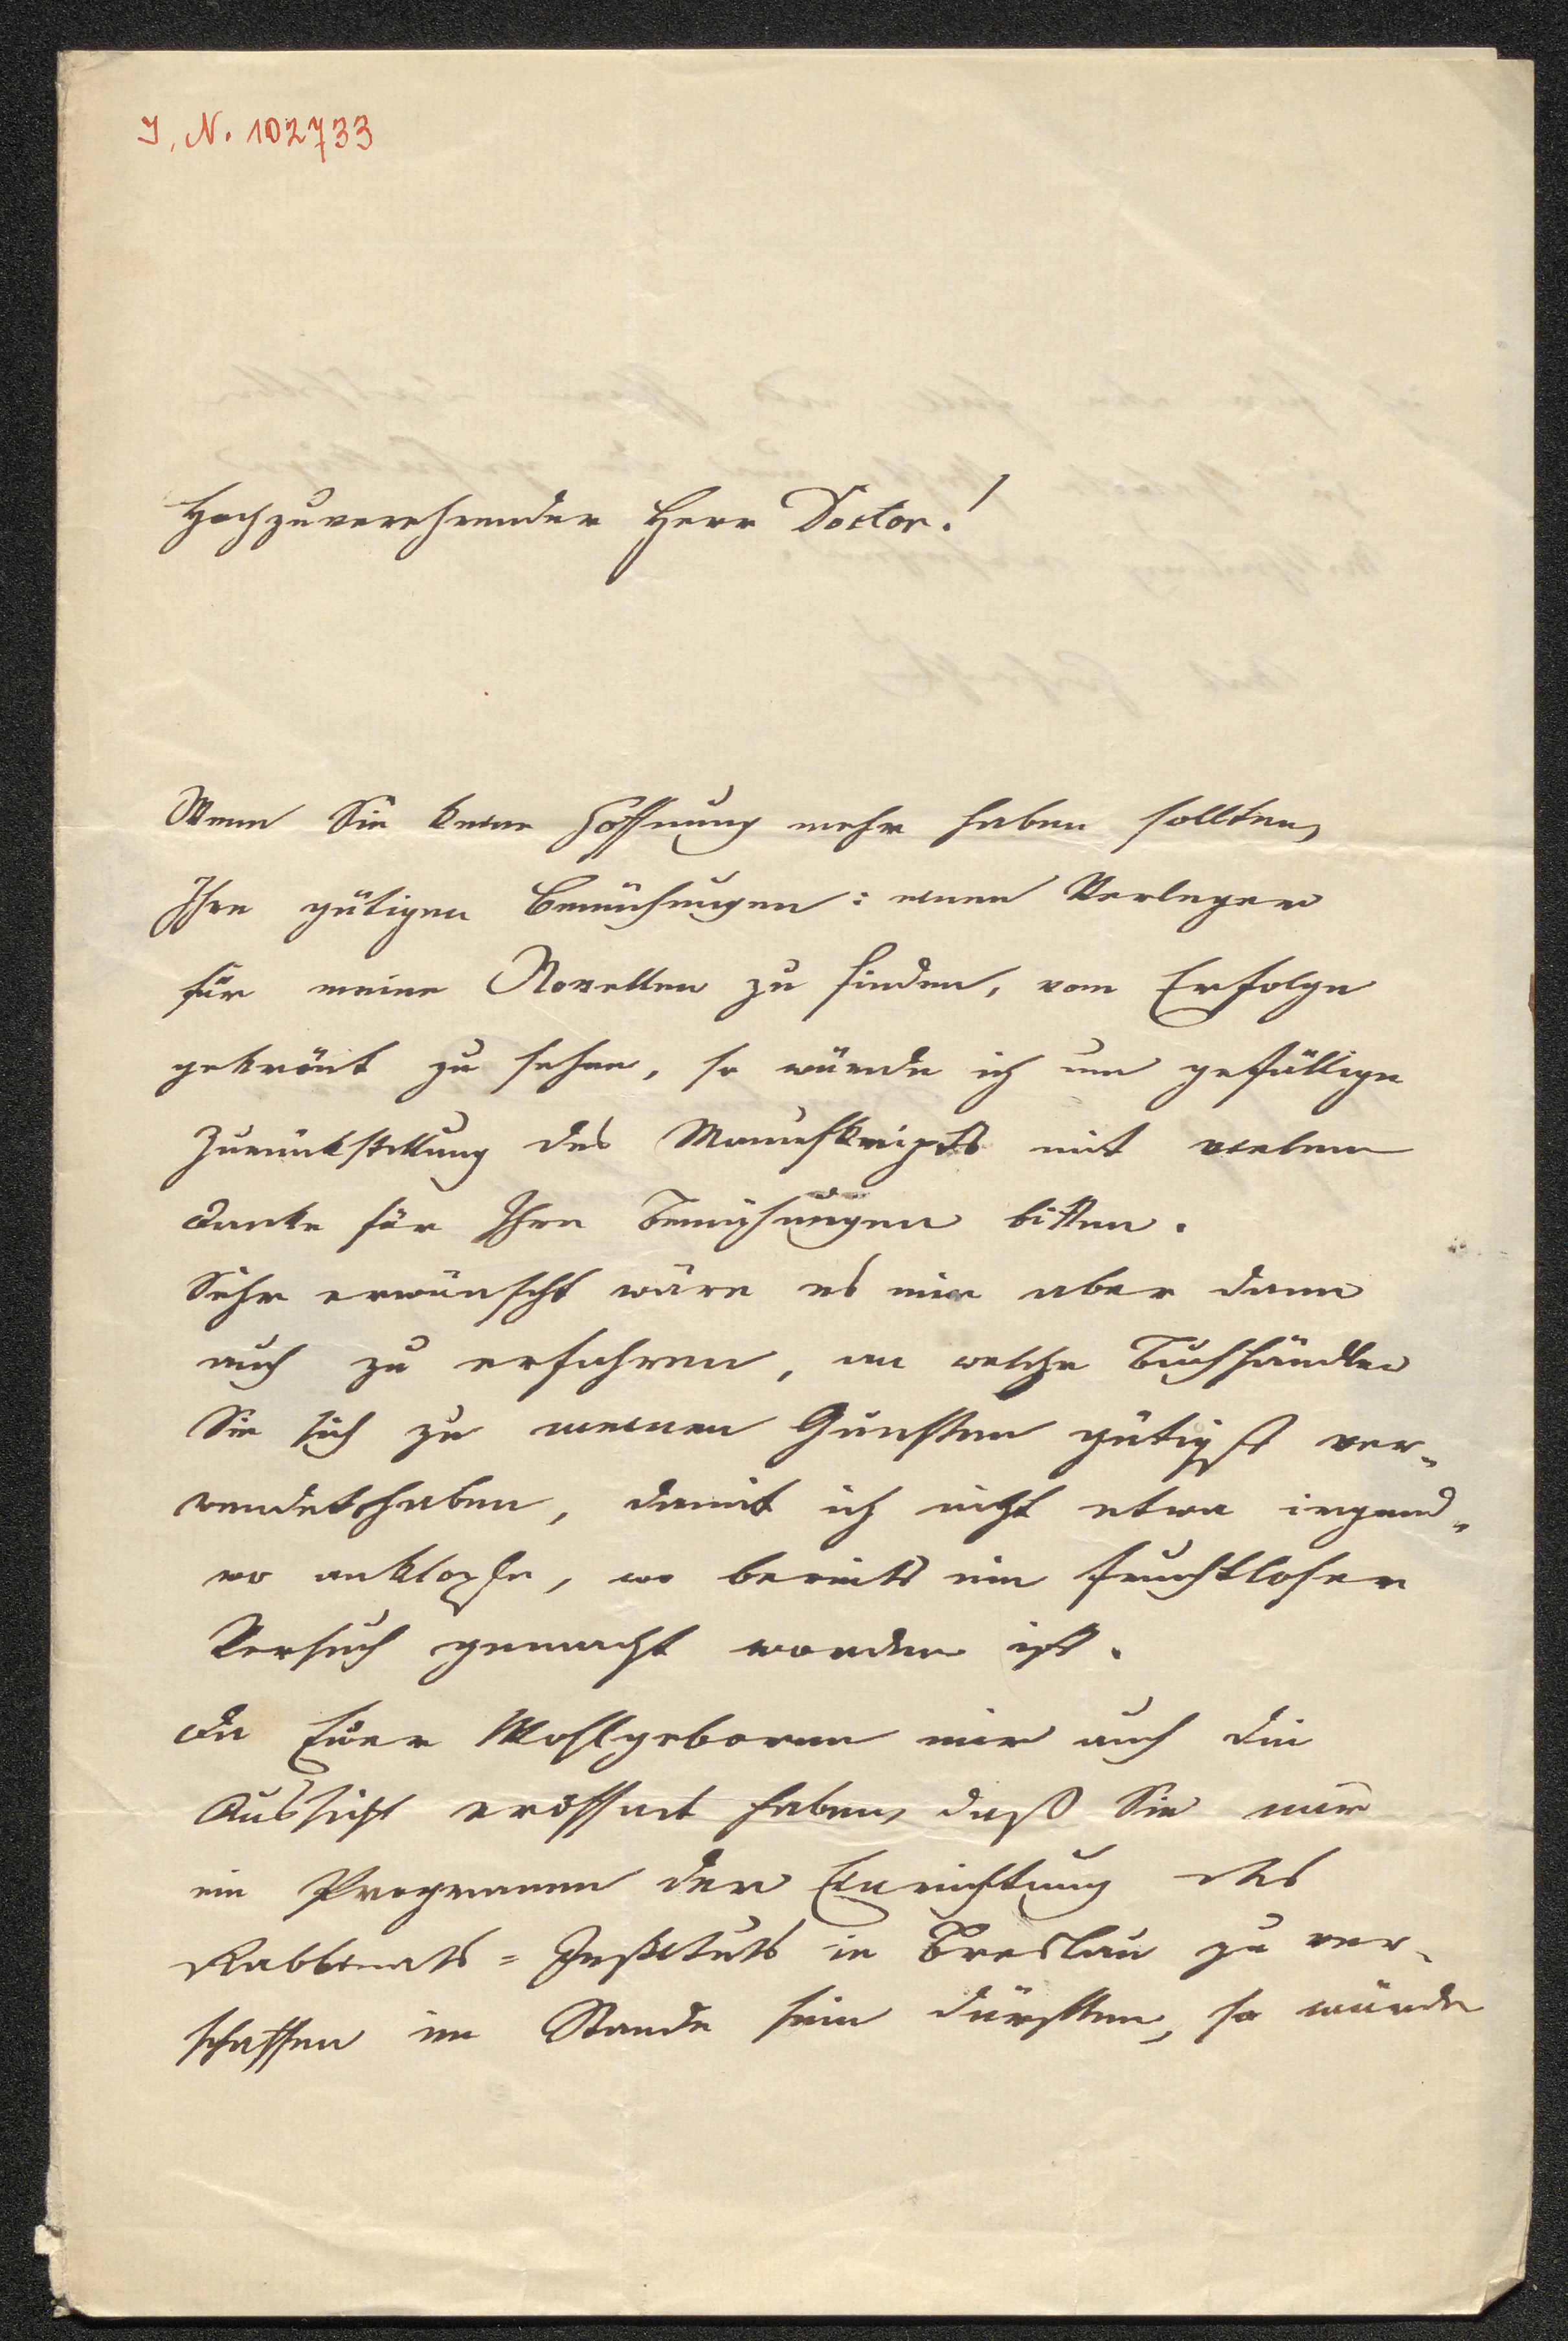 I. N. 102733
Hochzuverehrender Herr Doctor!
Wenn Sie keine Hoffnung mehr haben sollten,
Ihre gütigen Bemühungen: einen Verleger
für meine Novellen zu finden, vom Erfolge
gekrönt zu sehen, so würde ich um gefällige
Zurückstellung des Manuskripts mit vielem
Danke für Ihre Bemühungen bitten.
Sehr erwünscht wäre es mir aber dann
auch zu erfahren, an welche Buchhändler
Sie sich zu meinen Gunsten gütigst ver-
wendet haben, damit ich nicht etwa irgend-
wo anklopfe, wo bereits ein fruchtloser
Versuch gemacht worden ist.
Da Euer Wohlgeboren mir auch die
Aussicht eröffnet haben, daß Sie mir
ein Programm der Einrichtung des
Rabbinats-Instituts in Breslau zu ver-
schaffen im Stande sein dürften, so würde